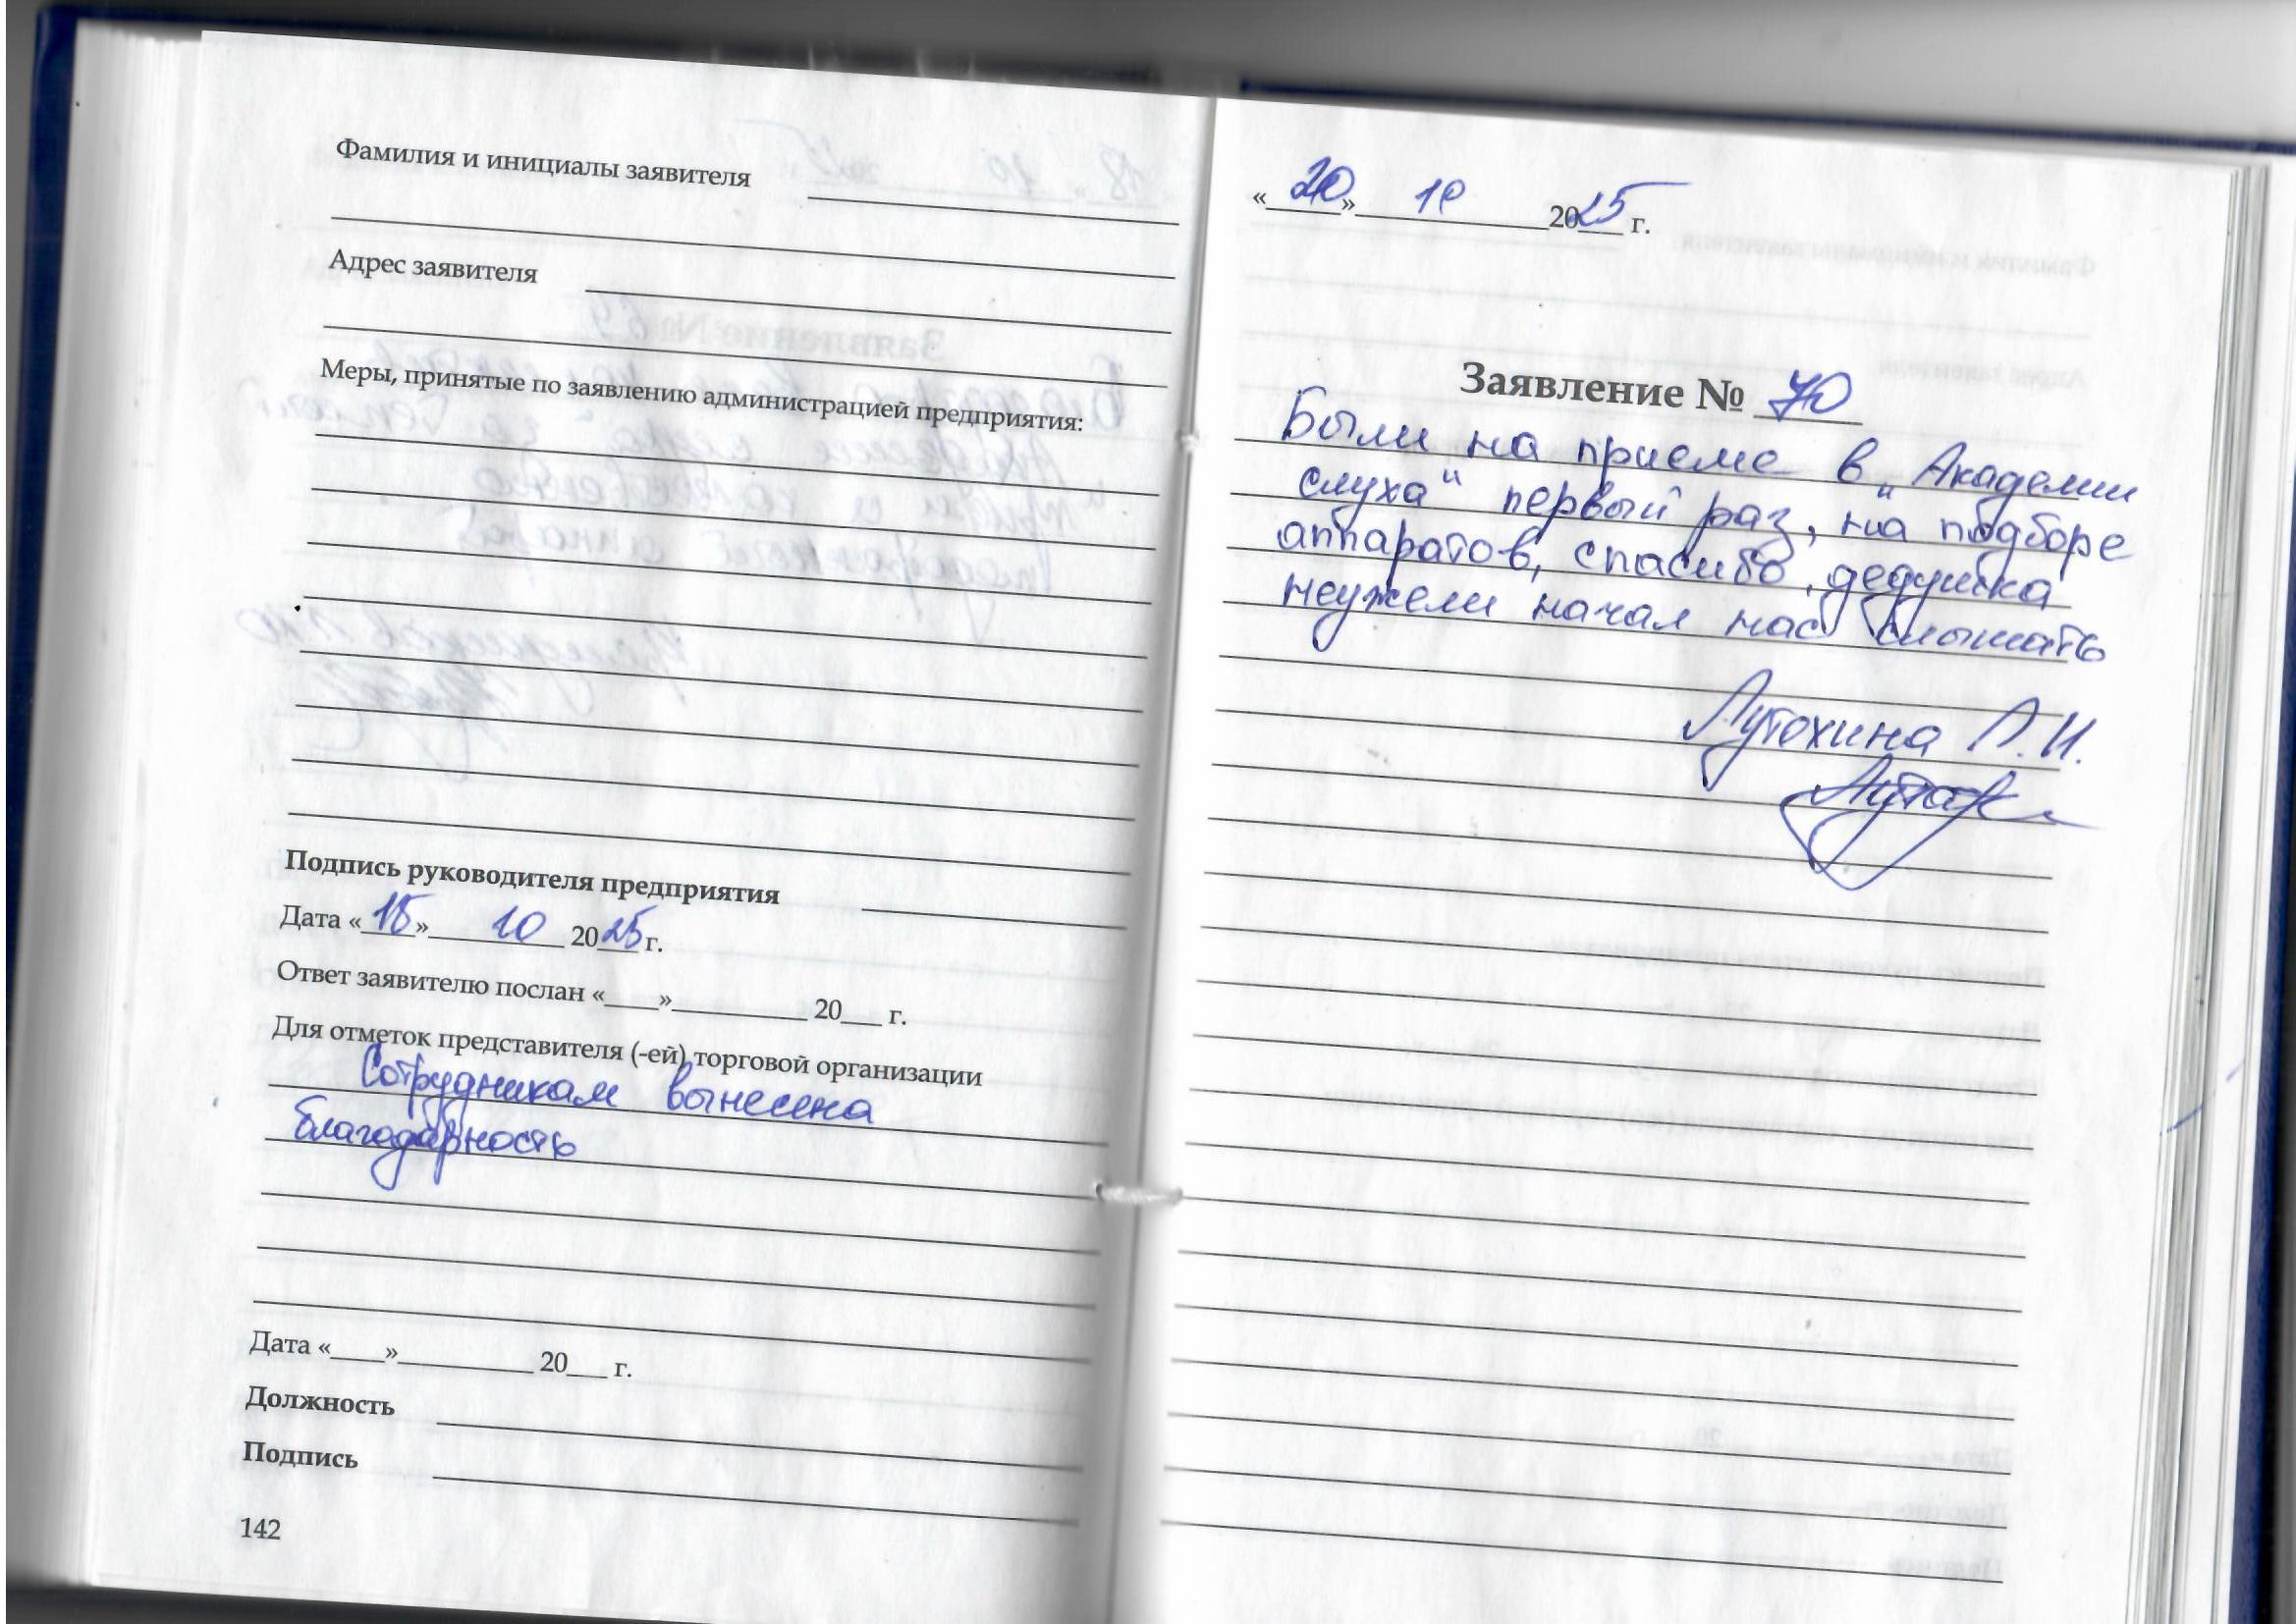 Фамилия и инициалы заявителя
Адрес заявителя
Меры, принятые по заявлению администрацией предприятия:
Подпись руководителя предприятия
Дата «18» 10 2025 г.
Ответ заявителю послан «____»__________ 20___ г.
Для отметок представителя (-ей) торговой организации
Сотрудникам вынесена
благодарность
Дата «____»__________ 20___ г.
Должность
Подпись
142
«20» 10 2025 г.
Заявление № 70
Были на приеме в „Академии
слуха“ первый раз, на подборе
аппаратов, спасибо, дедушка
неужели начал нас слышать
Лутохина Л.И.